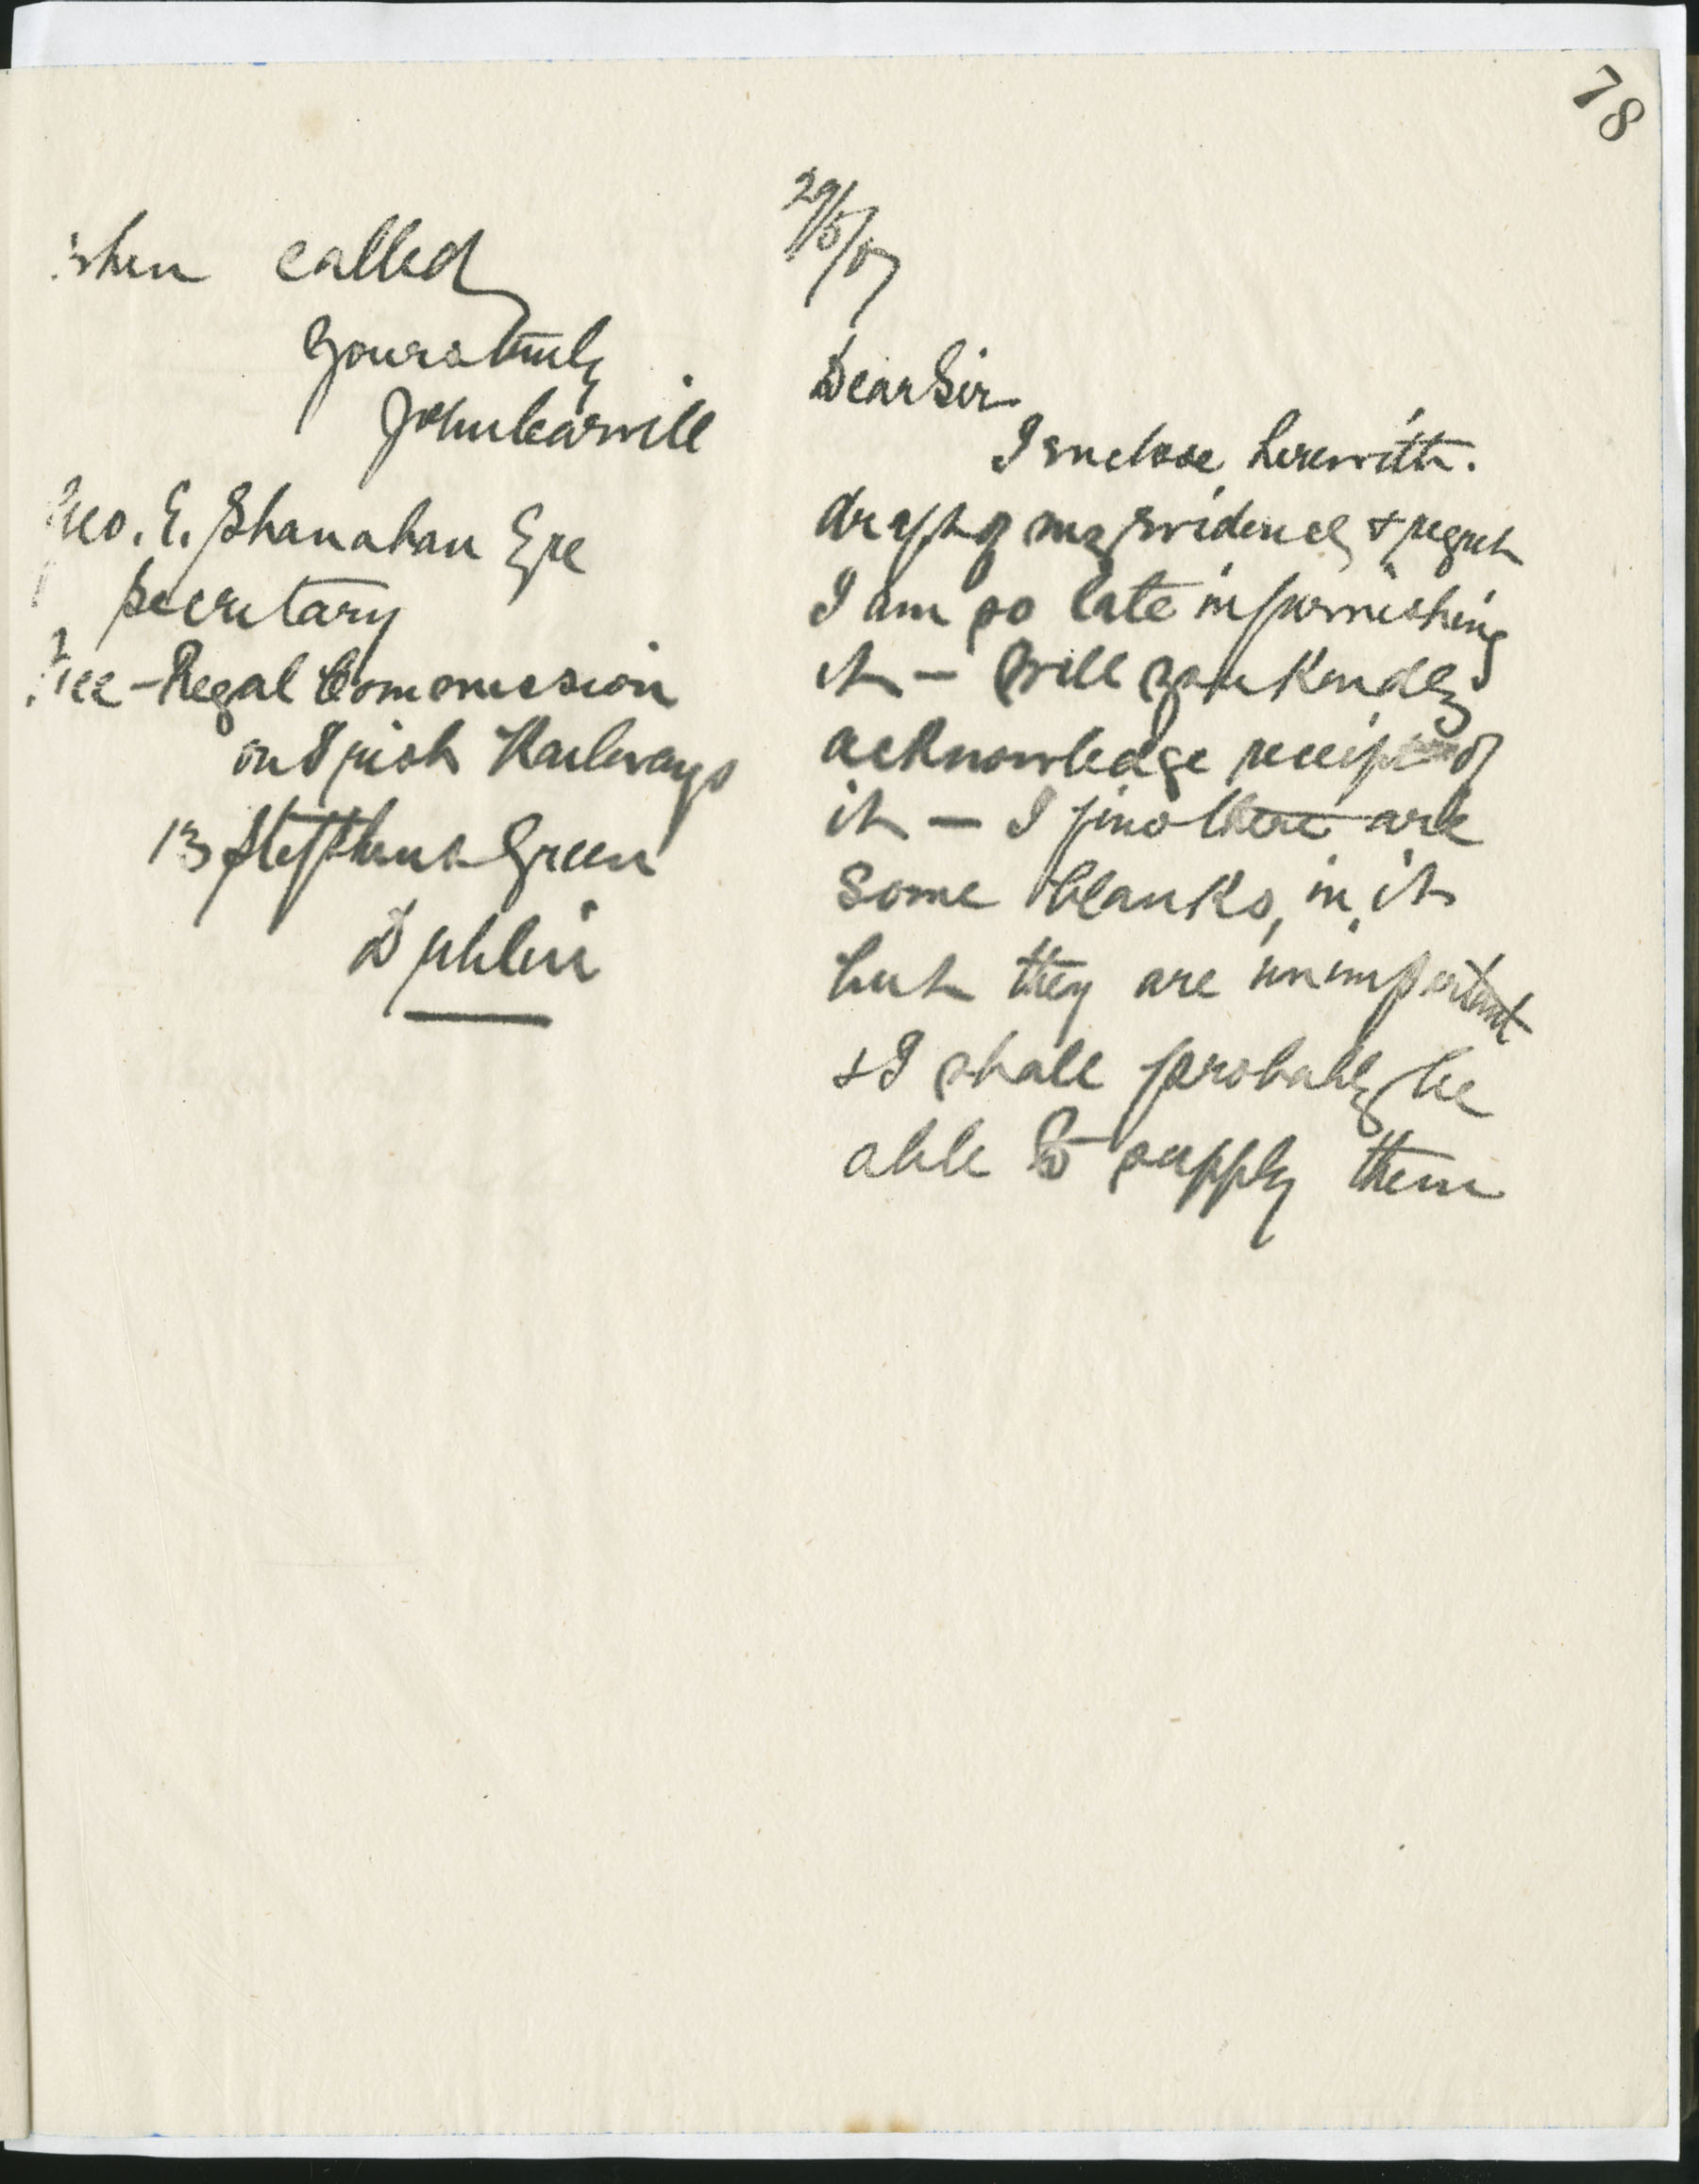 78
29/5/07
Dear Sir
I enclose herewith
draft of my evidence, & regret
I am so late in furnishing
it — Will you kindly
acknowledge receipt of
it — I find there are
some blanks, in it
but they are unimportant
& I shall probably be
able to supply them
when called
Yours truly
John Carvill
Geo. E. Shanahan Esq
Secretary
Vice-Regal Commission
on Irish Railways
13 Stephens Green
Dublin